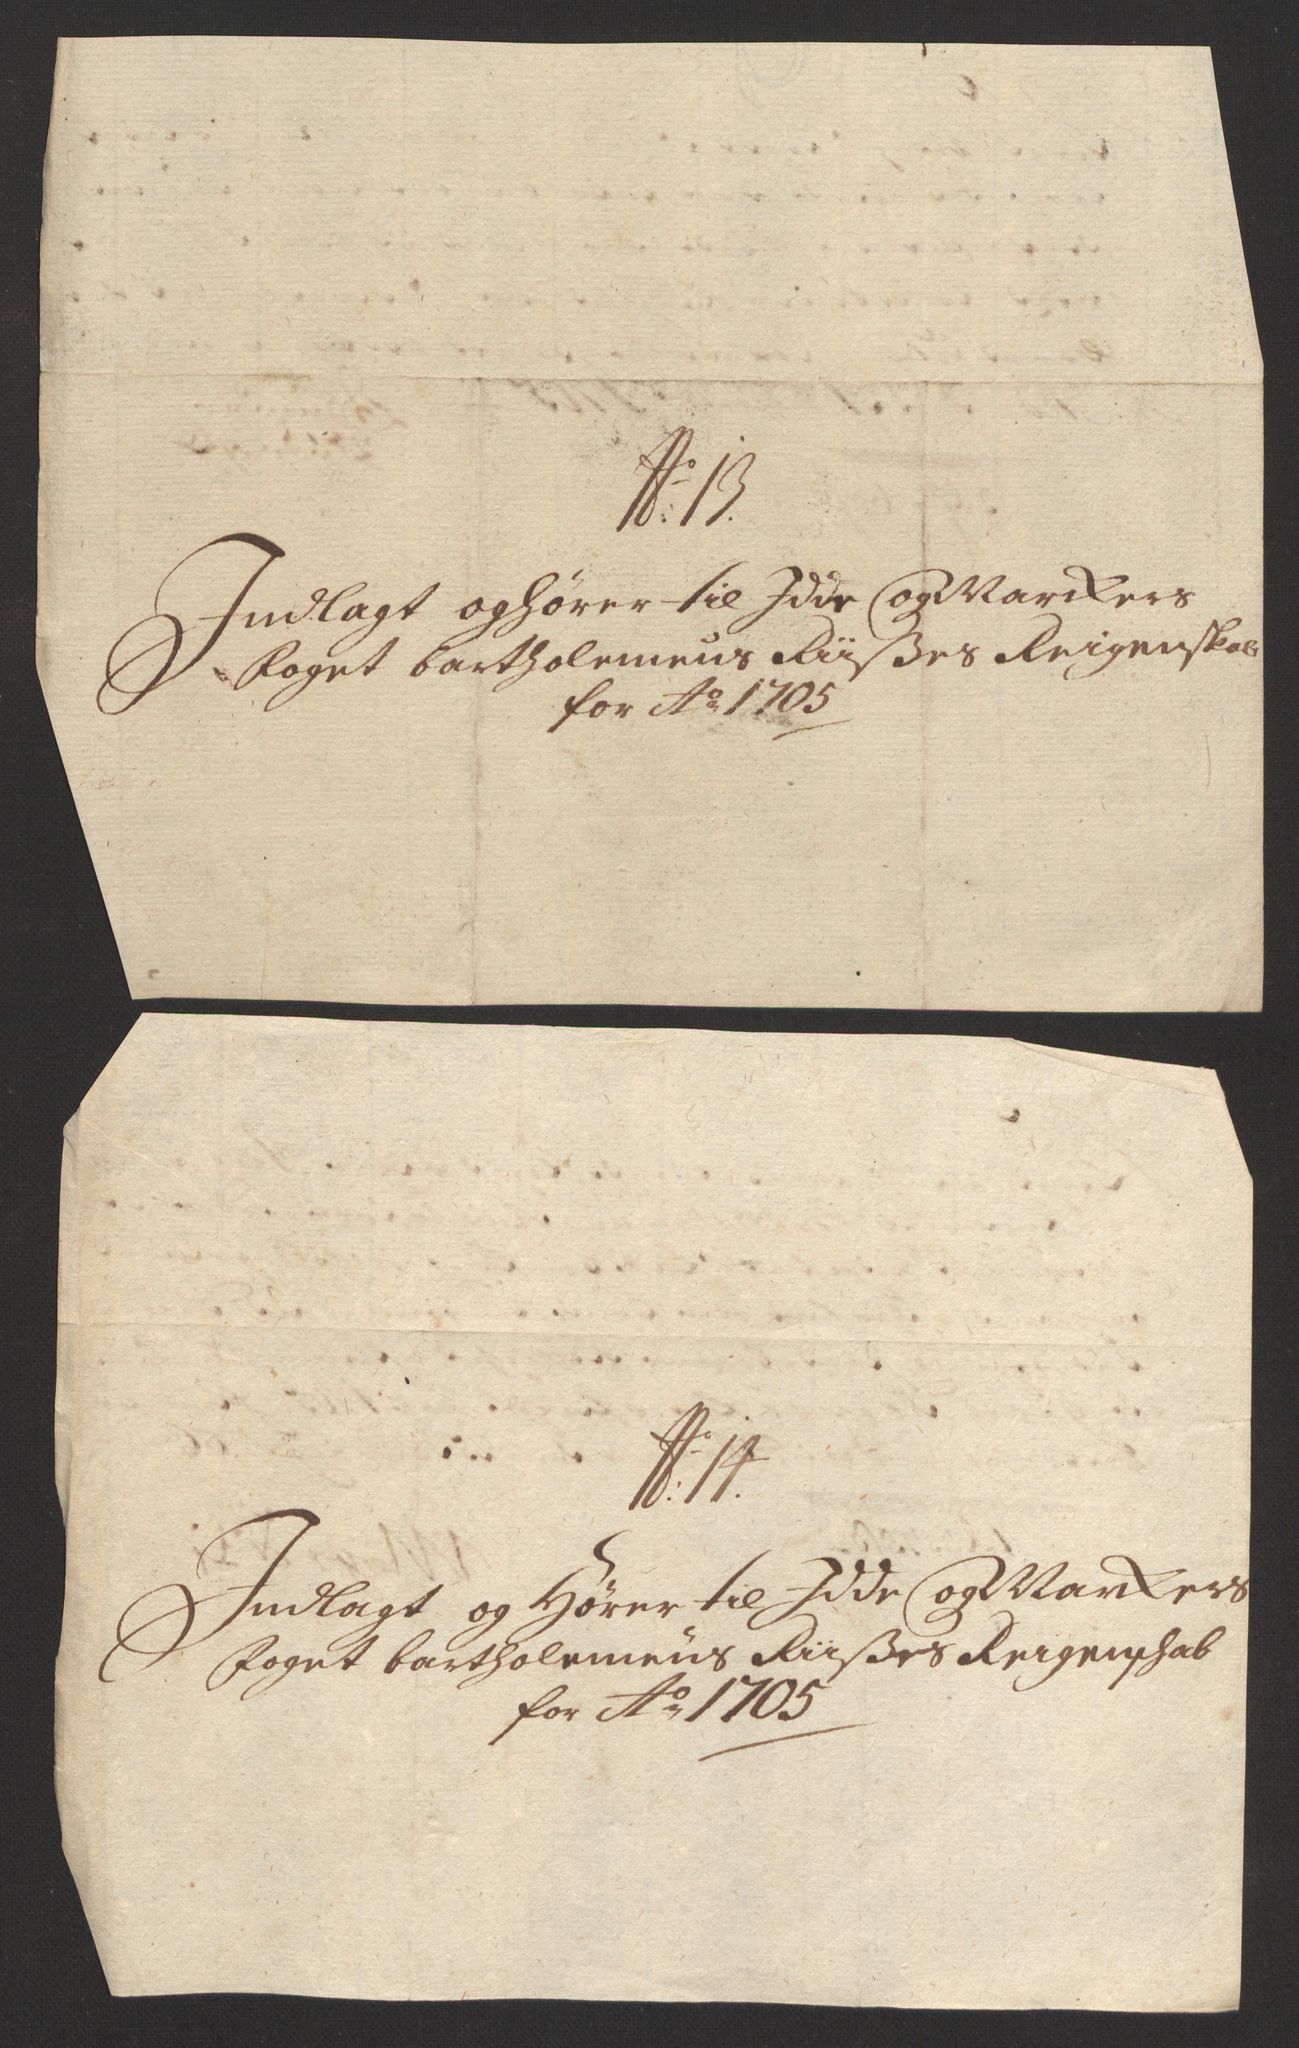 No: 13.
Indlagt og hörer til Idde og Marckers
Foget bartholemeus Riißes Reigenskab
for Ao 1705
No: 14.
Indlagt og Hörer til Idde og Marckers
Foget bartholemeus Riißes Reigenskab
for Ao 1705